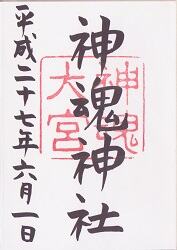 神魂神社
神魂
大宮
平成二十七年六月一日